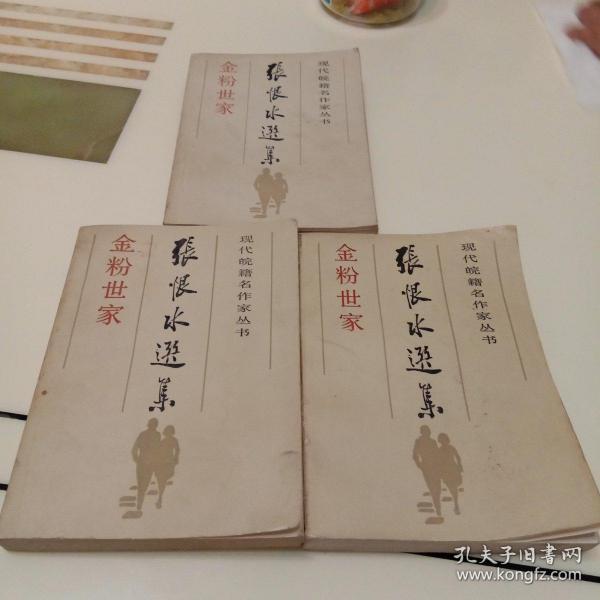 现代皖籍名作家丛书
張恨水選集
金粉世家
现代皖籍名作家丛书
張恨水選集
金粉世家
现代皖籍名作家丛书
張恨水選集
金粉世家
孔夫子旧书网
www.kongfz.com